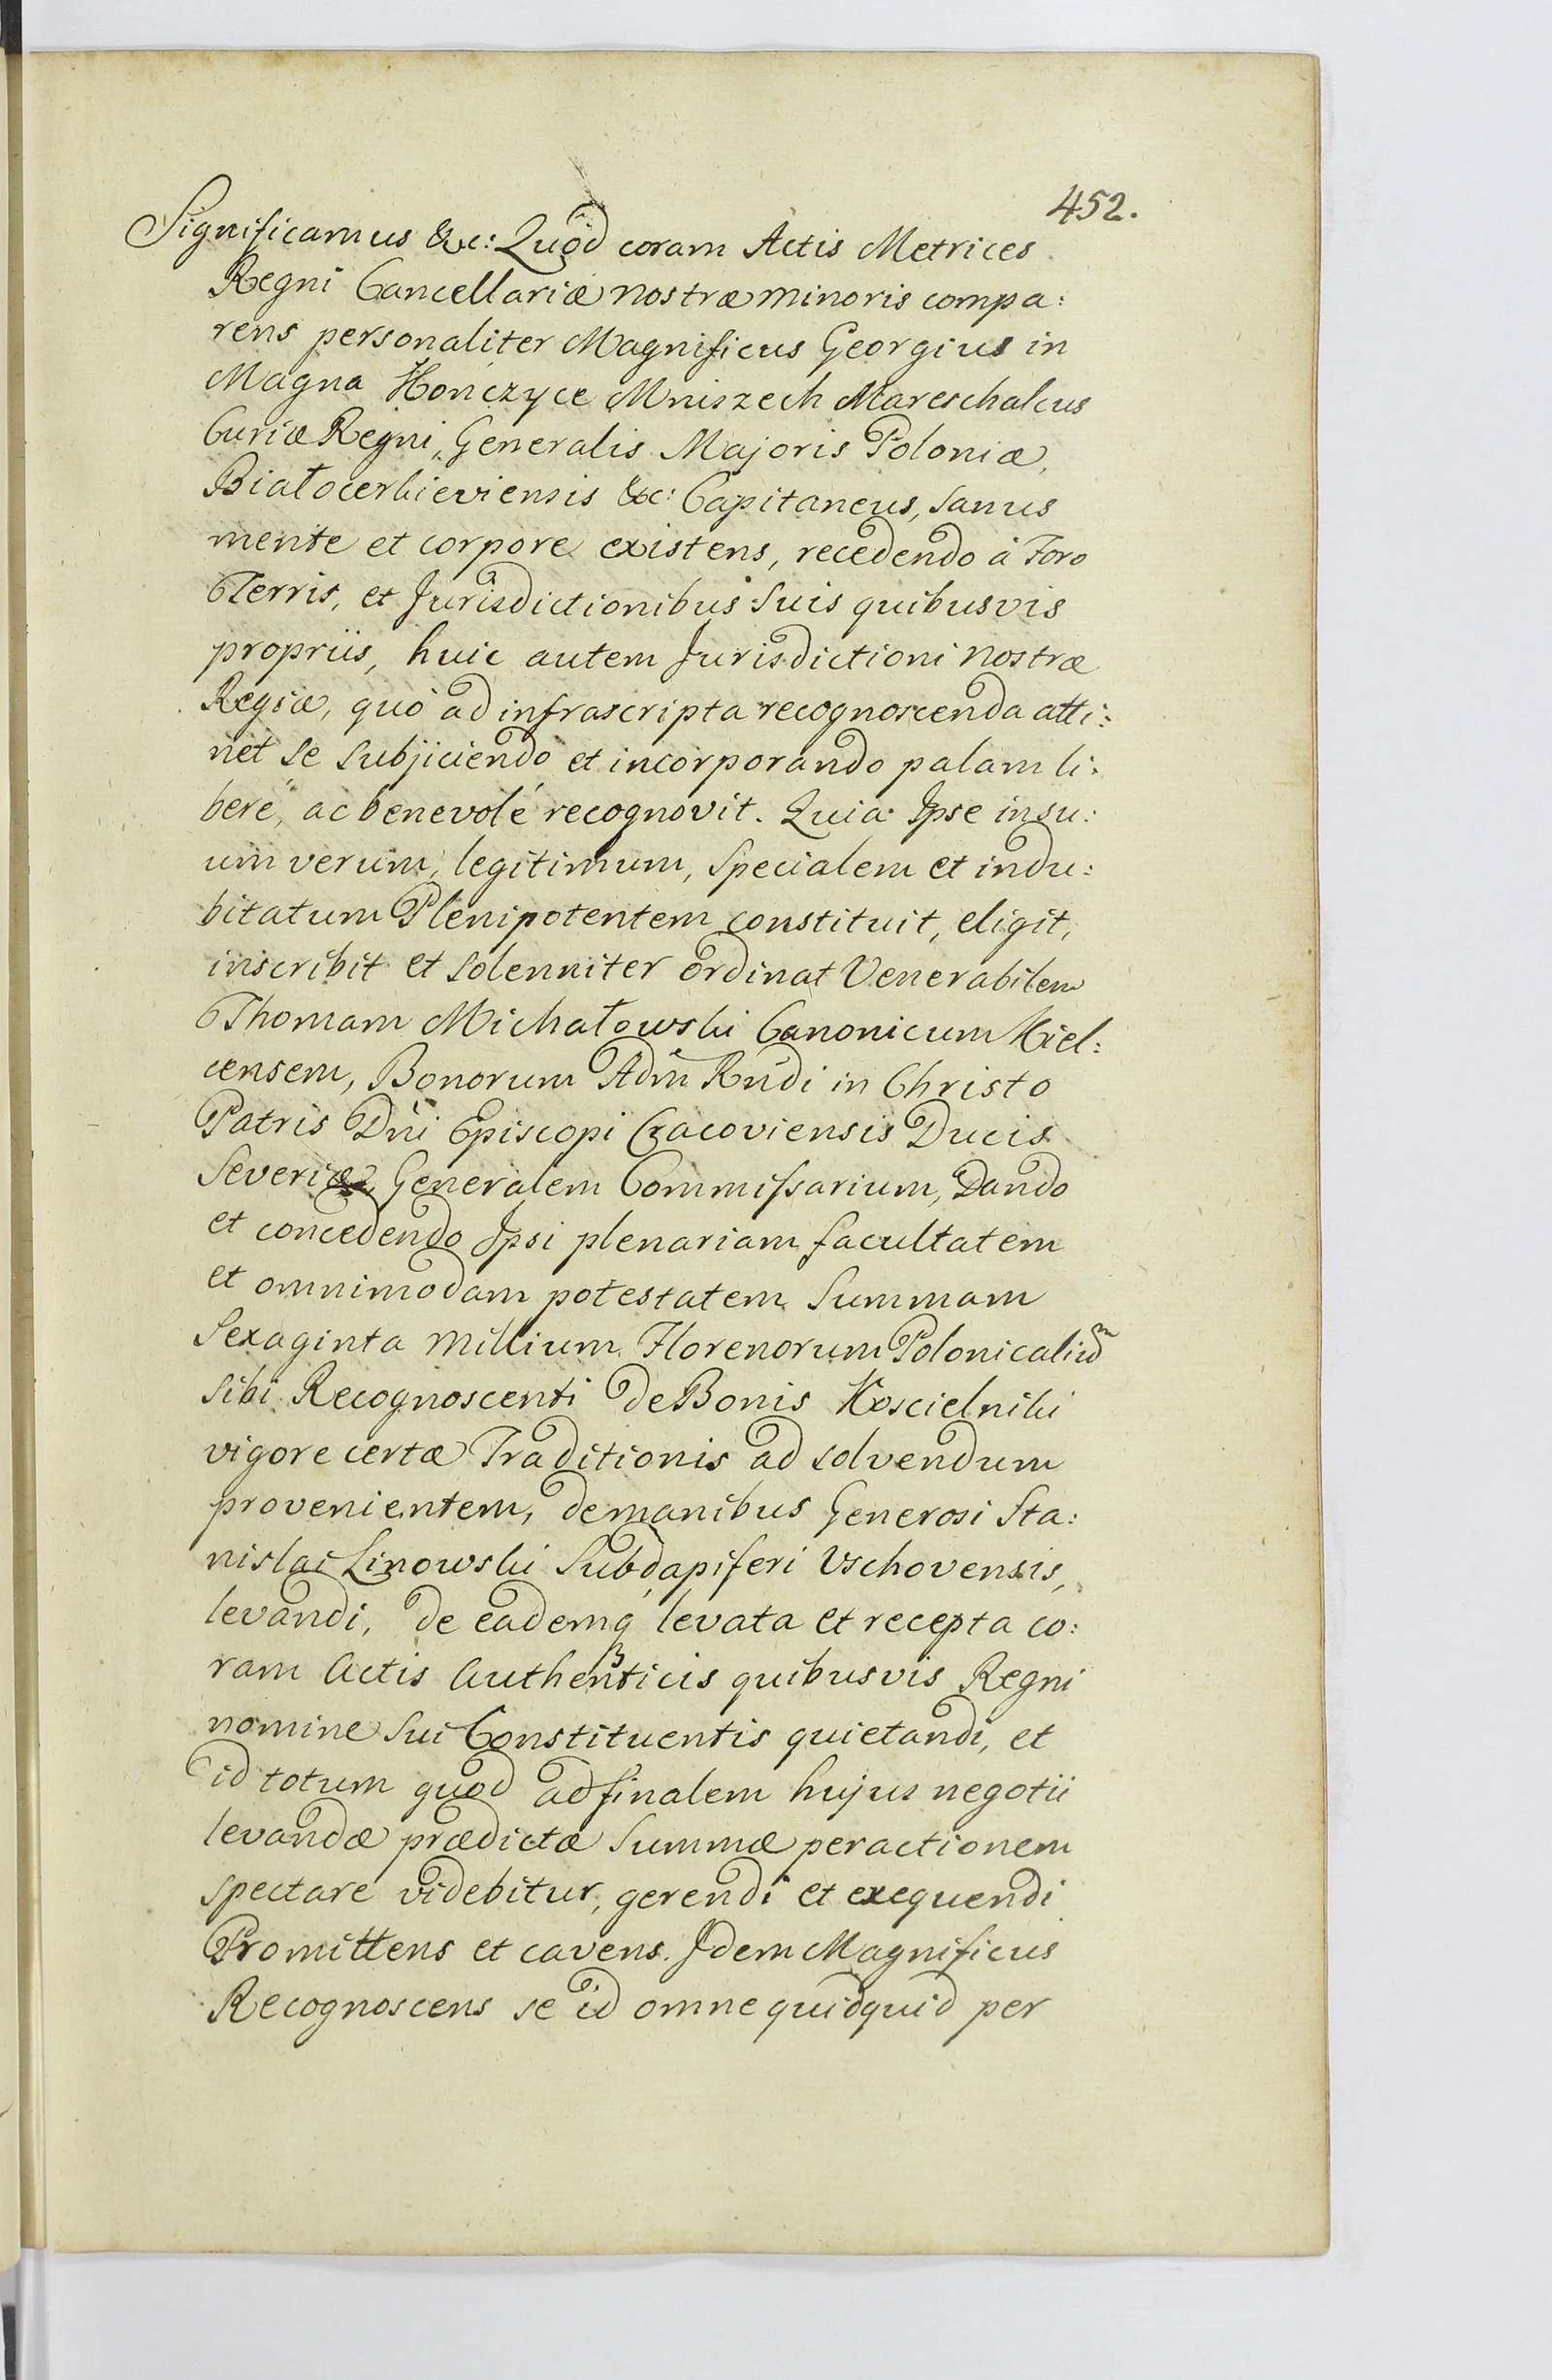 452.
Significamus &c: Quod coram Actis Metrices
Regni Cancellariæ nostræ minoris compa:
rens personaliter Magnificus Georgius in
Magna Kończyce Mniszech Mareschalcus
Curiæ Regni, Generalis Majoris Poloniæ,
Białocerkieviensis &c: Capitaneus, Sanus
mente et corpore existens, recedendo à Foro
Terris, et Jurisdictionibus Suis quibusvis
propriis, huic autem Jurisdictioni nostræ
Regiæ, quò ad infrascripta recognoscenda atti:
net se subjiciendo et incorporando palam li:
bere, ac benevolé recognovit. Quia Ipse in su:
um verum, legitimum, Specialem et indu:
bitatum Plenipotentem constituit, eligit,
inscribit et solenniter ordinat Venerabilem
Thomam Michałowski Canonicum Kiel:
censem, Bonorum Adm̃ Rñdi in Christo
Patris Dñi Episcopi Cracoviensis Ducis
Severiæ, Generalem Commissarium, Dando
et concedendo Ipsi plenariam facultatem
et omnimodam potestatem Summam
Sexaginta Millium Florenorum Polonicaliũ
sibi Recognoscenti de Bonis Koscielniki
vigore certæ Traditionis ad solvendum
provenientem, de manibus Generosi Sta:
nislai Linowski Subdapiferi Vschovensis,
levandi, de eademq́ levata et recepta co:
ram Actis Authenticis quibusvis Regni
nomine Sui Constituentis quietandi, et
id totum quod ad finalem hujus negotii
levandæ prædictæ Summæ peractionem
spectare videbitur, gerendi et exequendi
Promittens et cavens. Idem Magnificus
Recognoscens se id omne quidquid per